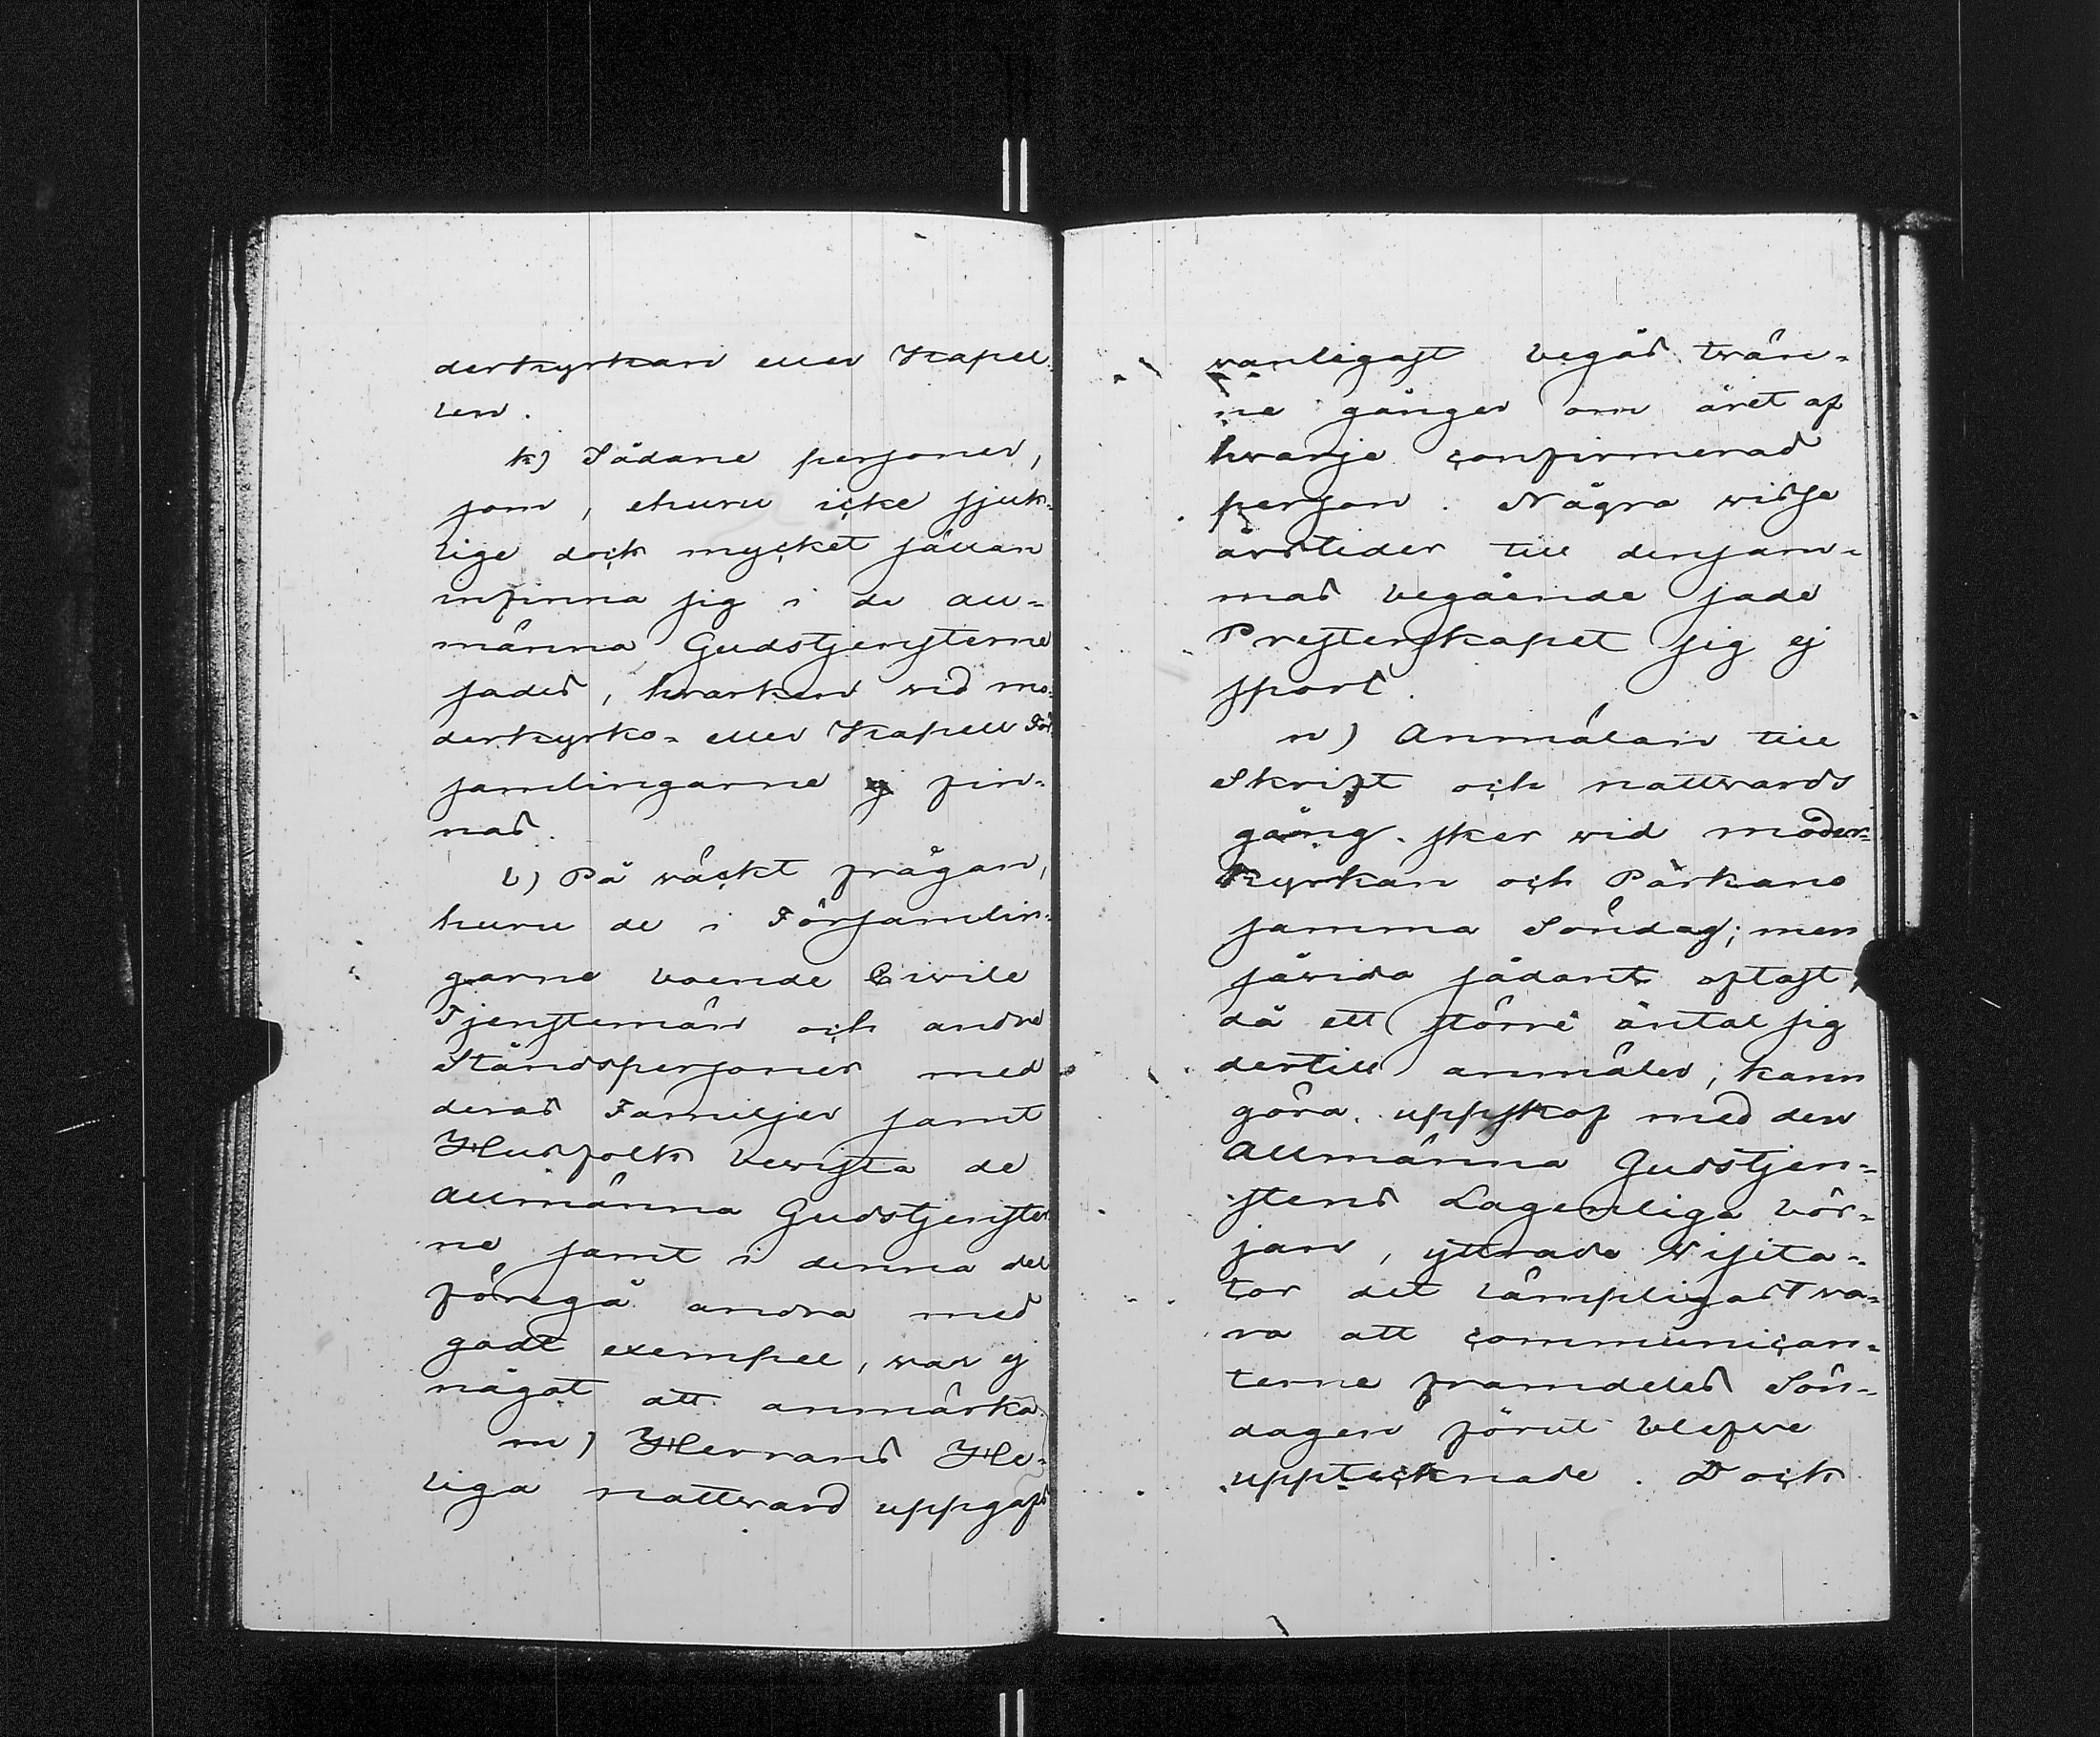 derkyrkan eller Kapel-
len.
k) Sådane personer,
som, ehuru icke sjuk-
lige dock mycket sällan
infinna sig i de all-
männa Gudstjensterne
sades, hvarken vid mo-
derkyrko- eller Kapell För
samlingarne ej fin-
nas.
l) På väckt frågan,
huru de i Församlin-
garne boende Civile
Tjenstemän och andre
Ståndspersoner med
deras Familjer samt
Husfolk bevista de
allmänna Gudstjenster
ne samt i denna del
föregå andra med
godt exempel, var ej
något att anmärka.
m) Herrans He-
liga nattvard uppgafs
vanligast begås tvän-
ne gånger om året af
hvarje confirmerad
person. Några vissa
årstider till densam-
mas begående sade
Presterskapet sig ej
sport.
n) Anmälan till
Skrift och nattvards
gång sker vid moder-
kyrkan och Pärkano
samma Söndag; men
såvida sådant oftast,
då ett större antal sig
dertill anmäler, kan
göra uppskof med den
Allmänna Gudstjen-
stens Lagenliga bör-
jan, yttrade Visita-
tor det lämpligast va-
ra att communican-
terne framdeles Sön-
dagen förut blefve
upptecknade. Dock